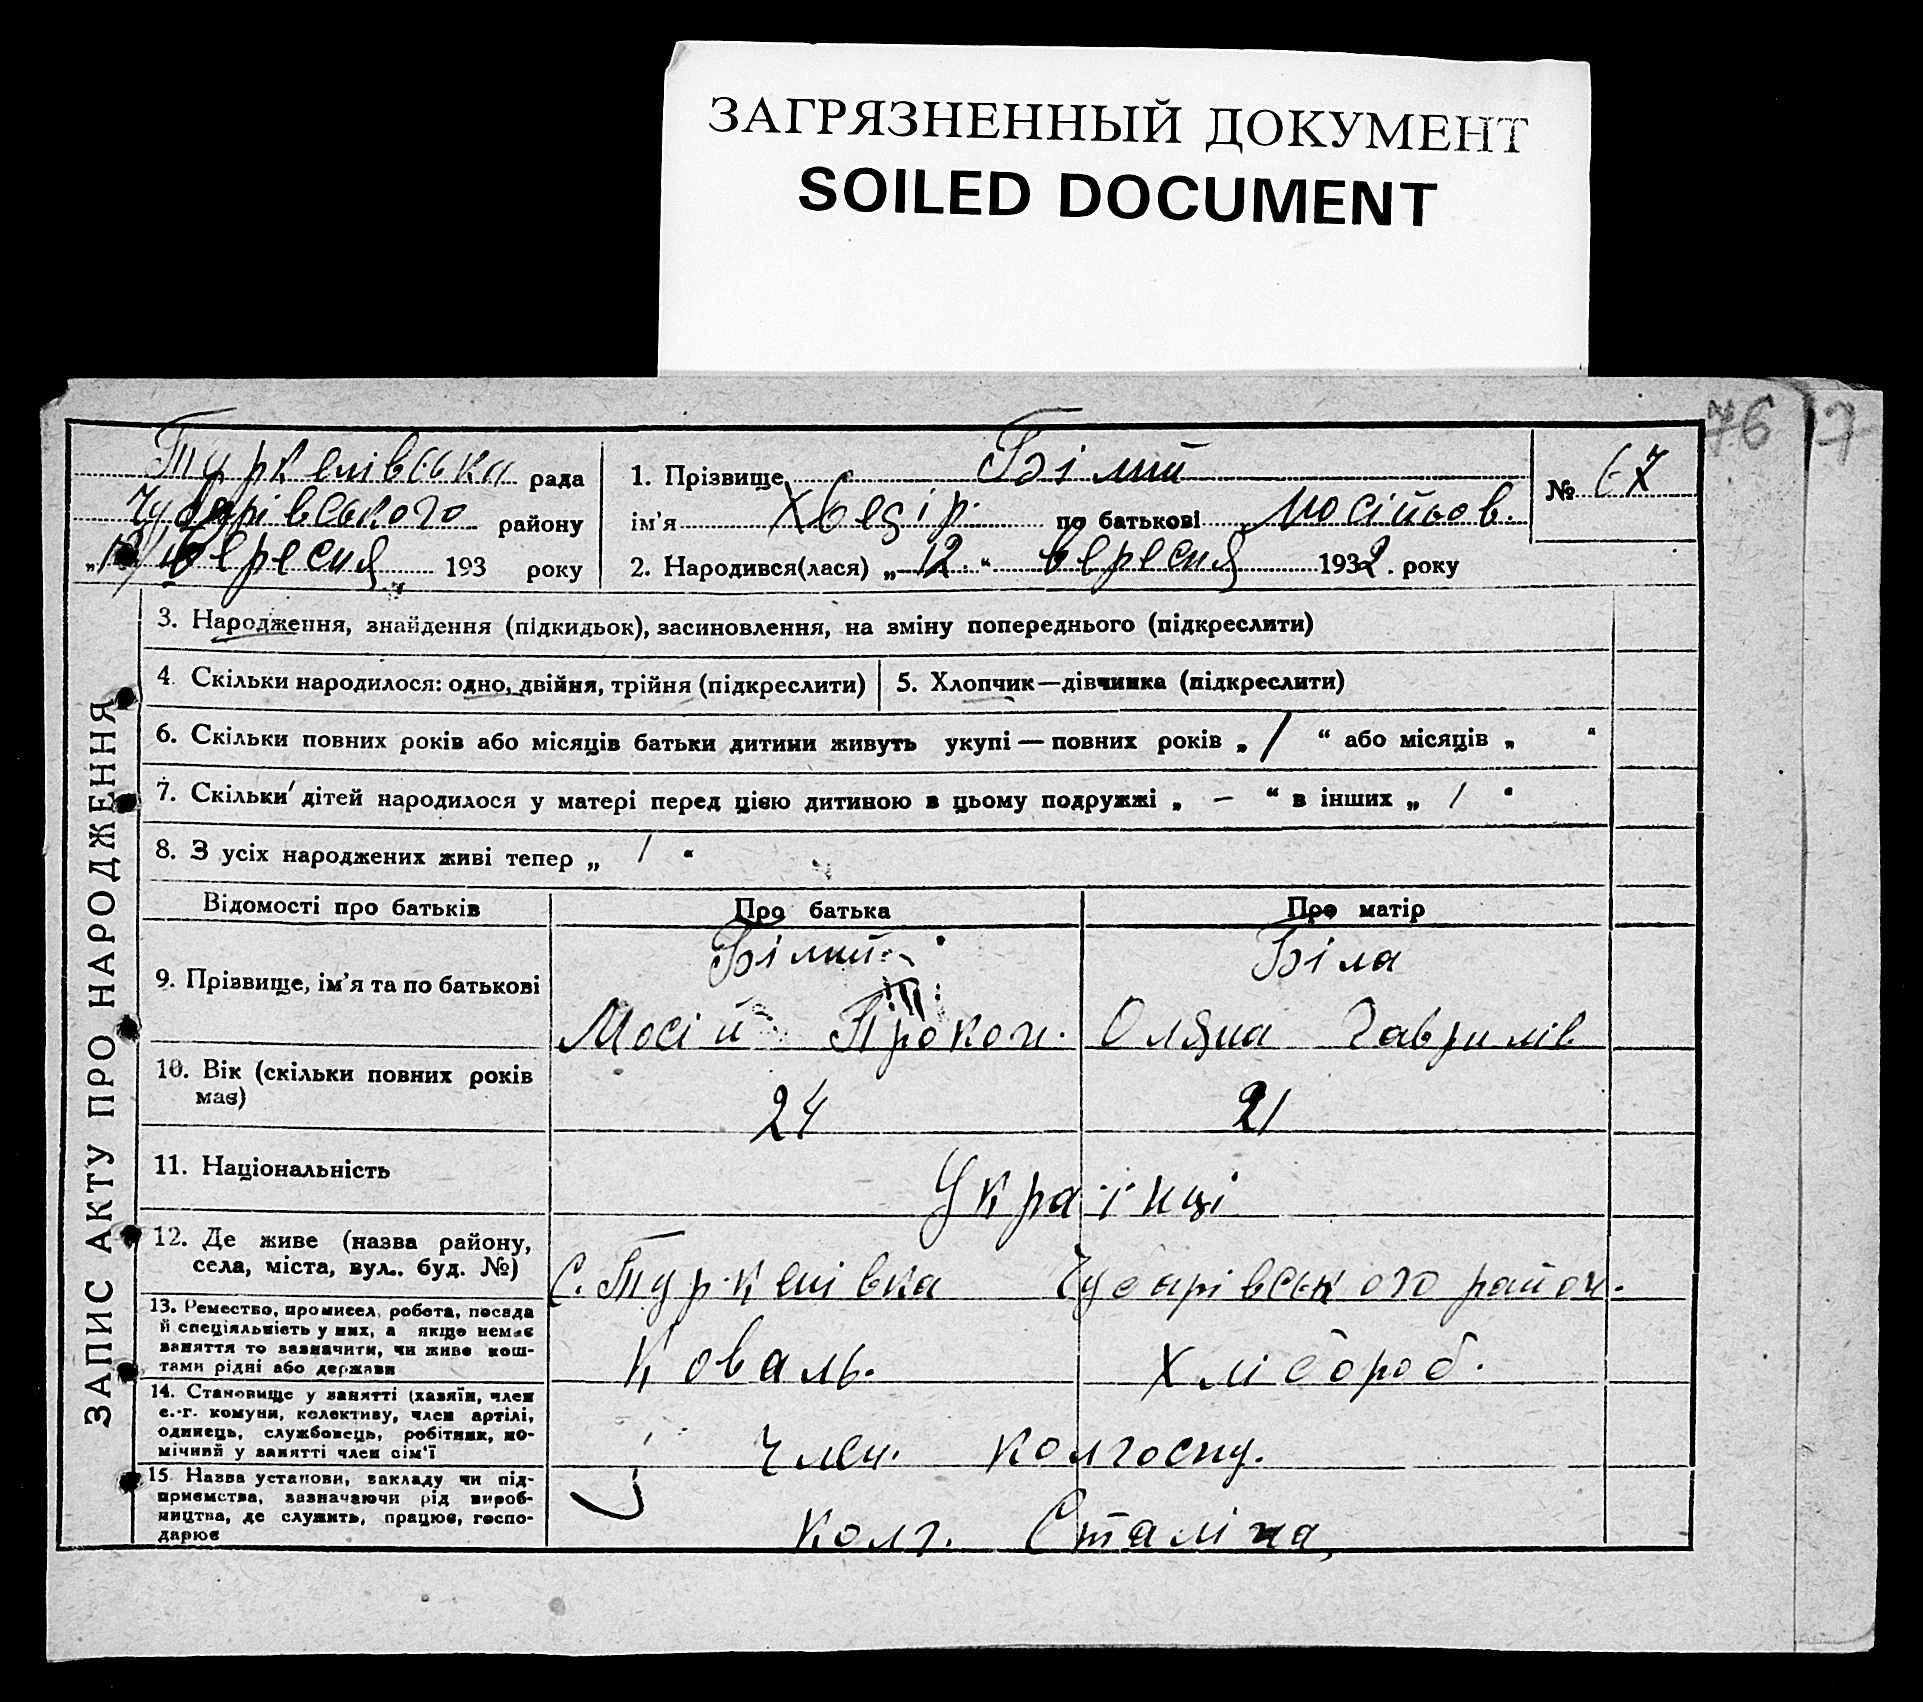 ЗАГРЯЗНЕННЫЙ ДОКУМЕНТ
SOILED DOCUMENT
76 7
Туркенівська рада
Чубарівського району
вересня 193 року
1. Прізвище Білий
ім'я по батькові Мосійов.
2. Народився(лася) „12“ вересня 1932. року
№ 67
ЗАПИС АКТУ ПРО НАРОДЖЕННЯ
3. Народження, знайдення (підкидьок), засиновлення, на зміну попереднього (підкреслити)
4. Скільки народилося: одно, двійня, трійня (підкреслити)
5. Хлопчик—дівчинка (підкреслити)
6. Скільки повних років або місяців батьки дитини живуть укупі — повних років „ 1 “ або місяців „ “
7. Скільки дітей народилося у матері перед цією дитиною в цьому подружжі „ — “ в інших „ 1 “
8. З усіх народжених живі тепер „ 1 “
Відомості про батьків
Про батька
Про матір
9. Прізвище, ім'я та по батькові
Білий
Мосій Прокоп.
Біла
Оляна Гаврилів
10. Вік (скільки повних років має)
24
21
11. Національність
Українці
12. Де живе (назва району,
села, міста, вул.. буд. №)
с. Туркенівка Чубарівського район.
13. Ремество, промисел, робота, посада
й спеціяльність у них, а якщо немає
заняття то зазначити, чи живе кош-
тами рідні або держави
Коваль.
Хлібороб.
14. Становище у занятті (хазяїн, член
с.-г. комуни, колективу, член артілі,
одинець, службовець, робітник, по-
мічний у занятті член сім'ї
Член. колгоспу.
15 Назва установи, закладу чи під-
приємства, зазначаючи рід вироб-
ництва, де служить, працює, госпо-
дарює
Колг. Сталіна,